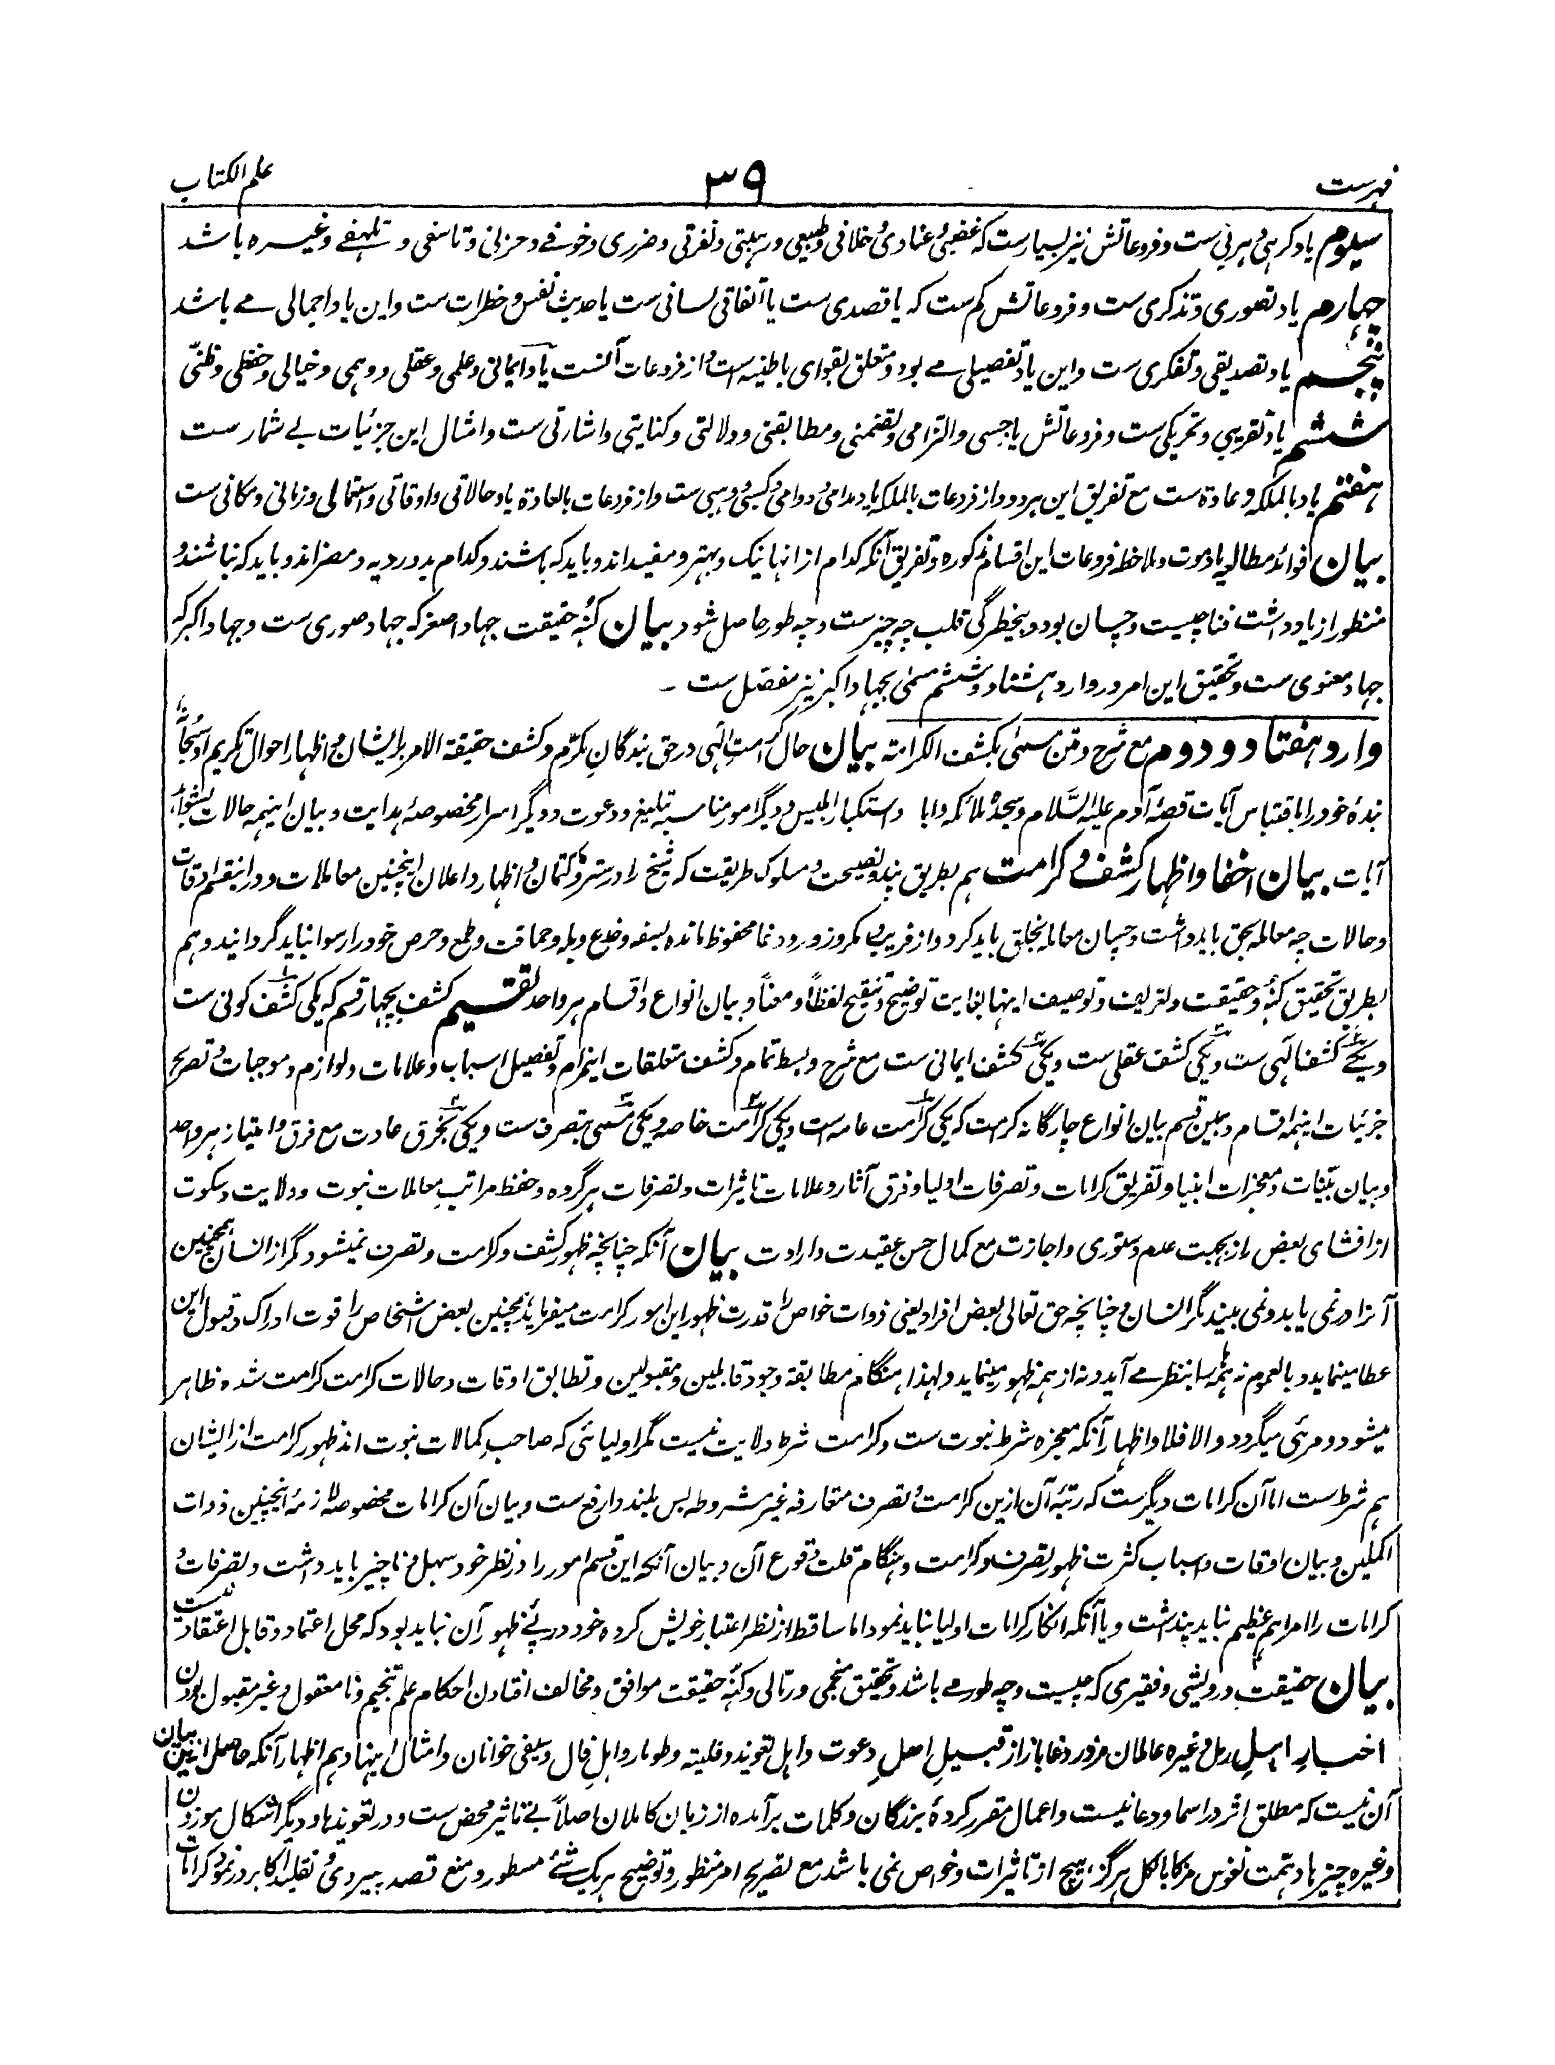 فہرست
۳۹
علم الکتاب
سیوم یاد کرہی و ہربی ست و فروعاتش نیز بسیارست کہ غضبی و عنادی و خلافی و طبیعی و ہیبتی و نفرتی و ضرری و خوفے و حزنی و تاسفی و تلہفے و غیرہ باشد
چہارم یاد تصوری و تذکری ست و فروعاتش کم ست کہ یا قصدی ست یا اتفاقی لسانی ست یا حدیث نفس و خطرات ست و این یاد اجمالی مے باشد
پنجم یاد تصدیقی و تفکری ست و این یاد تفصیلی مے بود و متعلق بقوای باطنیہ است و از فروعات آنست یاد ایمانی و علمی و عقلی و وہمی و خیالی و حفظی و ظنّی
ششم یاد تقریبی و تحریکی ست و فروعاتش یا حسی و التزامی و تضمنی و مطابقتی و دلالتی و کنایتی و اشارتی ست و امثال این جزئیات بے شمارست
ہفتم یاد بالملکہ و عادۃ ست مع تفریق این ہر دو و از فروعات بالملکہ یاد مدامی و دوامی و کسبی و وہبی ست و از فروعات بالعادۃ یاد حالاتی و اوقاتی و استمالی و زمانی و مکانی ست
بیان فوائد مطالبہ یاد موت و ملاحظہ فروعات این اقسام مذکورہ و تفریق آنکہ کدام از انہا نیک و بہتر و مفید اند و باید کہ باشند و کدام بد و ردیہ و مضر اند و باید کہ نباشند و
منظور از یادداشت فنا چیست و چسان بود و بیخطرگی قلب چہ چیز ست و چہ طور حاصل شود بیان کنہ حقیقت جہاد اصغر کہ جہاد صوری ست و جہاد اکبر کہ
جہاد معنوی ست و تحقیق این امر در وارد ہشتاد و ششم مسمی بجہاد اکبر نیز مفصّل ست ۔
وارد ہفتاد و دوم مع شرح و متن مسمیٰ بکشف الکرامتہ بیان حال کرامت الٰہی در حق بندگان مکرّم و کشف حقیقۃ الامر بر ایشان مع اظہار احوال تکریم او سبحانہ
بندہ خود را باقتباس آیات قصۂ آدم علیہ السّلام و سجدۂ ملائکہ و ابا و استکبار ابلیس و دیگر امور مناسبہ تبلیغ و دعوت و دیگر اسرار مخصوصۂ ہدایت و بیان اینہمہ حالات بشواہد
آیات بیان اخفا و اظہار کشف و کرامت ہم بطریق پند و نصیحت و سلوک طریقت کہ شیخ را در ستر و کتمان و اظہار و اعلان اینچنین معاملات و در اینقسم اوقات
و حالات چہ معاملہ بحق باید داشت و چسان معاملہ بخلق باید کرد و از فریب و مکر و زور و دغا محفوظ ماندہ بسفہ و خدع و بلہ و حماقت و طمع و حرص خود را رسوا نباید گردانید و ہم
بطریق تحقیق کنہ و حقیقت و تعریف و توصیف اینہا بغایت توضیح و تنقیح لفظاً و معناً و بیان انواع و اقسام ہر واحد تقسیم کشف بچہار قسم کہ یکی کشف کونی ست
و یکے کشف الٰہی ست و یکی کشف عقلی ست و یکی کشف ایمانی ست مع شرح و بسط تمام و کشف متعلقات اینہم و تفصیل اسباب و علامات و لوازم و موجبات و تصریح
جزئیات اینہمہ اقسام و ہمین قسم بیان انواع چارگانہ کرامت کہ یکی کرامت عامہ است و یکی کرامت خاصہ و یکی مسمی بتصرف ست و یکی بخرق عادت مع فرق و امتیاز ہر واحد
و بیان بیّنات و معجزات انبیا و تفریق کرامات و تصرفات اولیا و فرق آثار و علامات تاثیرات و تصرفات ہر گروہ و حفظ مراتب معاملات نبوت و ولایت و سکوت
از افشای بعض راز بجہت عدم دستوری و اجازت مع کمال حسن عقیدت و ارادت بیان آنکہ چنانچہ ظہور کشف و کرامت و تصرف نمیشود مگر از انسان ہمچنین
آنرا در نمی یابد و نمی بیند مگر انسان و چنانچہ حق تعالی بعض افراد یعنی ذوات خواص را قدرت ظہور این امور کرامت میفرماید ہمچنین بعض اشخاص را قوت ادراک و قبول این
عطا مینماید و بالعموم نہ ہمہ را بنظر مے آید و نہ از ہمہ ظہور مینماید و لہذا ہنگام مطابقہ وجود قابلین و مقبولین و تطابق اوقات و حالات کرامت کرامت شدہ ظاہر
میشود و مرئی میگردد و الا فلا و اظہار آنکہ معجزہ شرط نبوت ست و کرامت شرط ولایت نیست مگر اولیائی کہ صاحب کمالات نبوت اند ظہور کرامت از ایشان
ہم شرط ست اما آن کرامات دیگرست کہ رتبۂ آن ازین کرامت و تصرف متعارفہ غیر مشروطہ بس بلند و ارفع ست و بیان آن کرامات مخصوصہ لازمۂ اینچنین ذوات
اکملین و بیان اوقات و اسباب کثرت ظہور تصرف و کرامت و ہنگام قلت وقوع آن و بیان آنکہ این قسم امور را در نظر خود سہل و ناچیز باید داشت و تصرفات و
کرامات را امر اہم عظیم نباید پنداشت و یا آنکہ انکار کرامات اولیا نباید نمود اما ساقط از نظر اعتبار خویش کردہ خود در پے ظہور آن نباید بود کہ محل اعتماد و قابل اعتقاد نیست
بیان حقیقت درویشی و فقیری کہ چیست و چہ طور مے باشد و تحقیق منجمی و رمالی و کنہ حقیقت موافق و مخالف افتادن احکام علم تنجیم و نامعقول و غیر مقبول بودن
اخبار اہل رمل و غیرہ عالمان مزور دغاباز از قبیل اہل دعوت و اہل تعویذ و فلیتہ و طومار و اہل فال و سیفی خوانان و امثال اینہا و ہم اظہار آنکہ حاصل ازین بیان
آن نیست کہ مطلق اثر در اسما و دعا نیست و اعمال مقرر کردۂ بزرگان و کلمات برآمدہ از زبان کاملان اصلاً بے تاثیر محض ست و در تعویذہا و دیگر اشکال موزون
و غیرہ چیزہا و ہمت نفوس مزکا بالکل ہرگز ہیچ از تاثیرات و خواص نمی باشد مع تصریح امر منظور و توضیح ہر یک شئے مسطور و منع قصد پیروی و تقلید اکابر در نمود کرامات